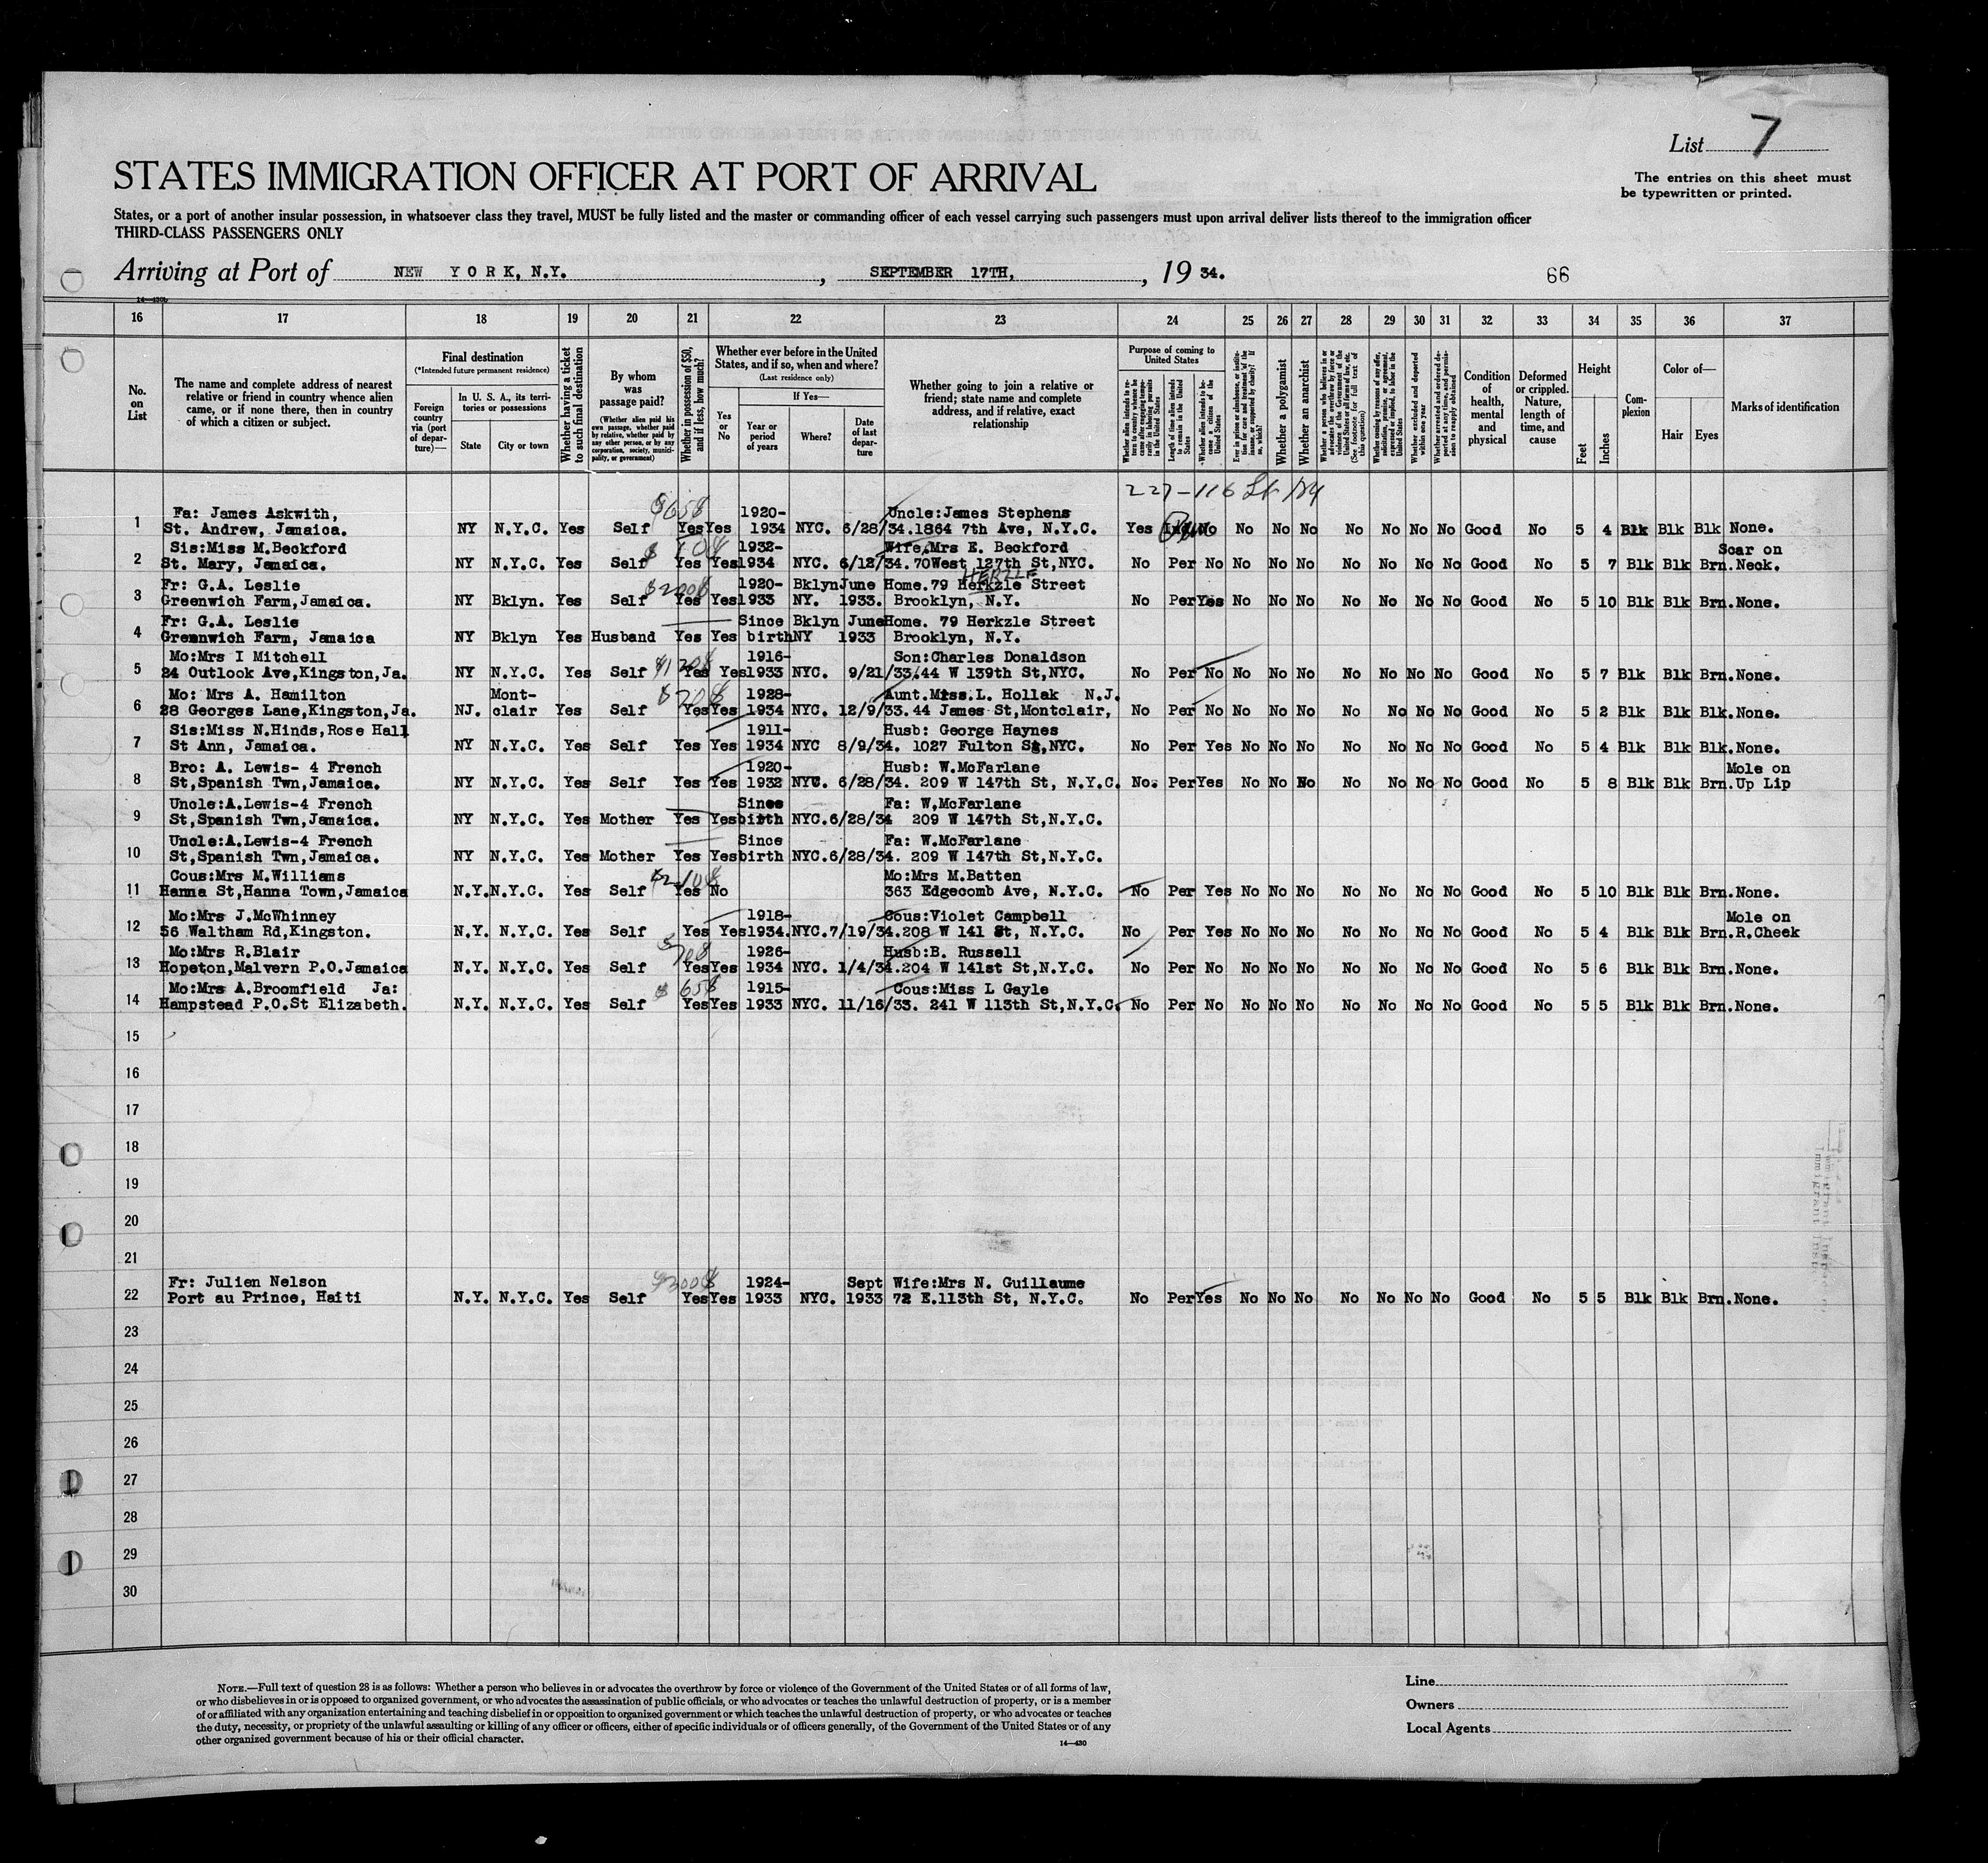 List 7
The entries on this sheet must
be typewritten or printed.
STATES IMMIGRATION OFFICER AT PORT OF ARRIVAL
States, or a port of another insular possession, in whatsoever class they travel, MUST be fully listed and the master or commanding officer of each vessel carrying such passengers must upon arrival deliver lists thereof to the immigration officer
THIRD-CLASS PASSENGERS ONLY
Arriving at Port of NEW YORK, N.Y., SEPTEMBER 17TH, 19 34.
66
14-430b
16 17 18 19 20 21 22 23 24 25 26 27 28 29 30 31 32 33 34 35 36 37
No. on List
The name and complete address of nearest relative or friend in country whence alien came, or if none there, then in country of which a citizen or subject.
Final destination
(*Intended future permanent residence)
Foreign country via (port of departure)—
In U. S. A., its territories or possessions
State
City or town
Whether having a ticket to such final destination
By whom was passage paid?
(Whether alien paid his own passage, whether paid by relative, whether paid by any other person, or by any corporation, society, municipality, or government)
Whether in possession of $50, and if less, how much?
Whether ever before in the United States, and if so, when and where?
(Last residence only)
Yes or No
If Yes—
Year or period of years
Where?
Date of last departure
Whether going to join a relative or friend; state name and complete address, and if relative, exact relationship
Purpose of coming to United States
Whether alien intends to return to country whence he came after engaging temporarily in laboring pursuits in the United States
Length of time alien intends to remain in the United States
Whether alien intends to become a citizen of the United States
Ever in prison or almshouse, or institution for care and treatment of the insane, or supported by charity? If so, which?
Whether a polygamist
Whether an anarchist
Whether a person who believes in or advocates the overthrow by force or violence of the Government of the United States or all forms of law, etc. (See footnote for full text of this question)
Whether coming by reasons of any offer, solicitation, promise, or agreement, expressed or implied, to labor in the United States
Whether excluded and deported within one year
Whether arrested and ordered deported at any time, and permission to reapply obtained
Condition of health, mental and physical
Deformed or crippled. Nature, length of time, and cause
Height
Feet
Inches
Complexion
Color of—
Hair
Eyes
Marks of identification
227-116 St
1 Fa: James Askwith, $65 1920- Uncle:James Stephens
St. Andrew, Jamaica. NY N.Y.C. Yes Self Yes Yes 1934 NYC. 6/28/34. 1864 7th Ave, N.Y.C. Yes No No No No No No No No Good No 5 4 Blk Blk Blk None.
2 Sis:Miss M.Beckford $ 10 1932- Wife,Mrs E. Beckford Scar on
St. Mary, Jamaica. NY N.Y.C. Yes Self Yes Yes 1934 NYC. 6/12/34. 70West 127th St,NYC. No Per No No No No No No No No Good No 5 7 Blk Blk Brn. Neck.
3 Fr: G.A. Leslie $200 1920- Bklyn June Home.79 Herkzle Street HERZLE
Greenwich Farm,Jamaica. NY Bklyn. Yes Self Yes Yes 1933 NY. 1933. Brooklyn, N.Y. No Per Yes No No No No No No No Good No 5 10 Blk Blk Brn. None.
4 Fr: G.A. Leslie Since Bklyn June Home. 79 Herkzle Street
Greenwich Farm, Jamaica NY Bklyn Yes Husband Yes Yes birth NY 1933 Brooklyn, N.Y.
5 Mo:Mrs I Mitchell $120 1916- Son:Charles Donaldson
24 Outlook Ave,Kingston,Ja. NY N.Y.C. Yes Self Yes Yes 1933 NYC. 9/21/33. 44 W 139th St,NYC. No Per No No No No No No No No Good No 5 7 Blk Blk Brn. None.
6 Mo: Mrs A. Hamilton Mont- $20 1928- Aunt.Miss.L. Hollak N.J.
28 Georges Lane,Kingston,Ja. NJ. clair Yes Self Yes Yes 1934 NYC. 12/9/33. 44 James St,Montclair, No Per No No No No No No No No Good No 5 2 Blk Blk Blk. None.
7 Sis:Miss N.Hinds,Rose Hall 1911- Husb: George Haynes
St Ann, Jamaica. NY N.Y.C. Yes Self Yes Yes 1934 NYC 8/9/34. 1027 Fulton St,NYC. No Per Yes No No No No No No No Good No 5 4 Blk Blk Blk. None.
8 Bro: A. Lewis- 4 French 1920- Husb: W.McFarlane Mole on
St,Spanish Twn,Jamaica. NY N.Y.C. Yes Self Yes Yes 1932 NYC. 6/28/34. 209 W 147th St, N.Y.C. No. Per Yes No No No No No No No Good No 5 8 Blk Blk Brn. Up Lip
9 Uncle:A.Lewis-4 French Since Fa: W,McFarlane
St,Spanish Twn,Jamaica. NY N.Y.C. Yes Mother Yes Yes birth NYC. 6/28/34 209 W 147th St,N.Y.C.
10 Uncle:A.Lewis-4 French Since Fa: W.McFarlane
St,Spanish Twn,Jamaica. NY N.Y.C. Yes Mother Yes Yes birth NYC. 6/28/34. 209 W 147th St,N.Y.C.
11 Cous:Mrs M.Williams $210 Mo:Mrs M.Batten
Hanna St,Hanna Town,Jamaica N.Y. N.Y.C. Yes Self Yes No 363 Edgecomb Ave, N.Y.C. No Per Yes No No No No No No No Good No 5 10 Blk Blk Brn. None.
12 Mo:Mrs J.McWhinney 1918- Cous:Violet Campbell Mole on
56 Waltham Rd,Kingston. N.Y. N.Y.C. Yes Self Yes Yes 1934. NYC. 7/19/34. 208 W 141 St, N.Y.C. No Per Yes No No No No No No No Good No 5 4 Blk Blk Brn. R.Cheek
13 Mo:Mrs R.Blair 1926- Husb:B. Russell
Hopeton,Malvern P.O.Jamaica N.Y. N.Y.C. Yes Self Yes Yes 1934 NYC. 1/4/34. 204 W 141st St,N.Y.C. No Per No No No No No No No No Good No 5 6 Blk Blk Brn. None.
14 Mo:Mrs A.Broomfield Ja: $ 65 1915- Cous:Miss L Gayle
Hampstead P.O.St Elizabeth. N.Y. N.Y.C. Yes Self Yes Yes 1933 NYC. 11/16/33. 241 W 113th St,N.Y.C. No Per No No No No No No No No Good No 5 5 Blk Blk Brn. None.
15
16
17
18
19
20
21
22 Fr: Julien Nelson $300 1924- Sept Wife:Mrs N. Guillaume
Port au Prince, Haiti N.Y. N.Y.C. Yes Self Yes Yes 1933 NYC. 1933 72 E.113th St, N.Y.C. No Per Yes No No No No No No No Good No 5 5 Blk Blk Brn. None.
23
24
25
26
27
28
29
30
NOTE.—Full text of question 28 is as follows: Whether a person who believes in or advocates the overthrow by force or violence of the Government of the United States or of all forms of law,
or who disbelieves in or is opposed to organized government, or who advocates the assassination of public officials, or who advocates or teaches the unlawful destruction of property, or is a member
of or affiliated with any organization entertaining and teaching disbelief in or opposition to organized government or which teaches the unlawful destruction of property, or who advocates or teaches
the duty, necessity, or propriety of the unlawful assaulting or killing of any officer or officers, either of specific individuals or of officers generally, of the Government of the United States or of any
other organized government because of his or their official character.
14-430
Line
Owners
Local Agents